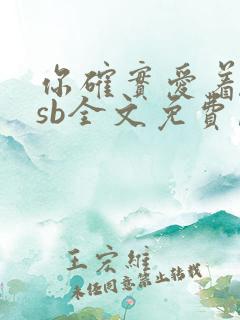 你確實愛着
sb全文免費
王宏維
未經同意禁止轉載